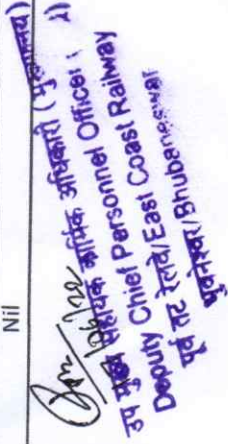 Nil
उप मुख्य कार्मिक अधिकारी (मुख्यालय)
Deputy Chief Personnel Officer
पूर्व तट रेलवे/East Coast Railway
भुवनेश्वर/Bhubaneswar